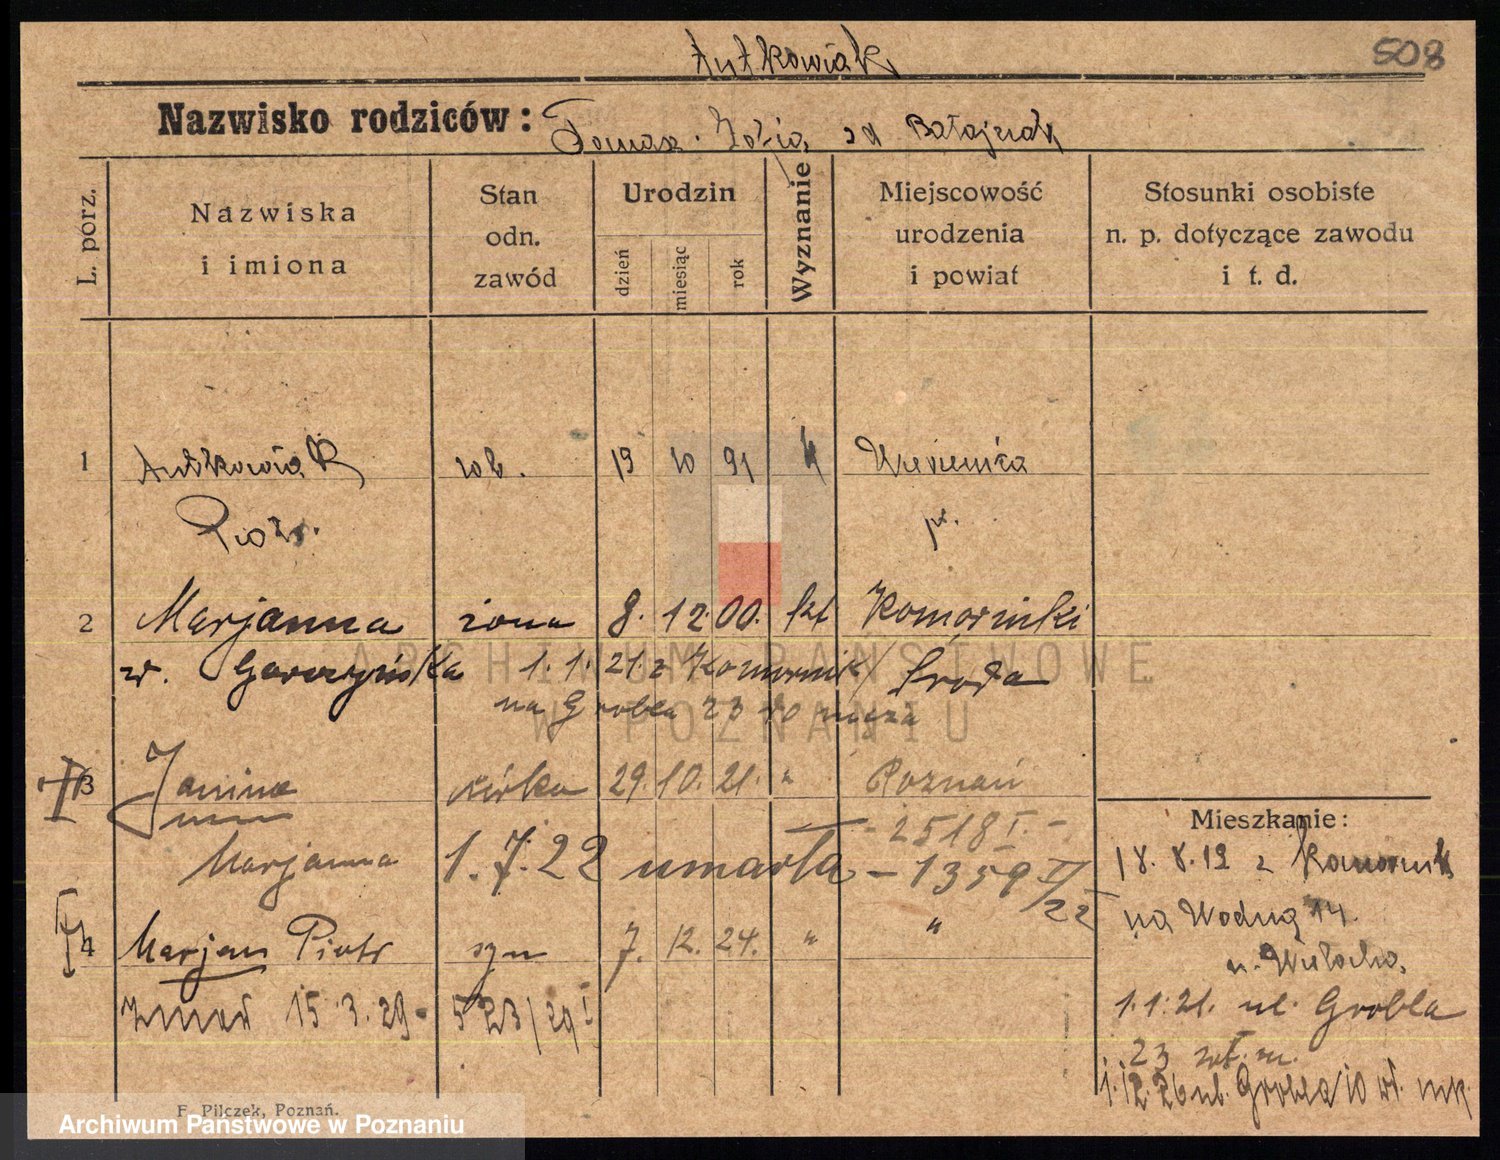 Antkowiak 508
Nazwisko rodziców: Tomasz. Zofia, zd
L. porz.
Nazwiska i imiona
Stan odn. zawód
Urodzin
dzień
miesiąc
rok
Wyznanie
Miejscowość urodzenia i powiat
Stosunki osobiste n. p. dotyczące zawodu i t. d.
1 Antkowiak rob. 19 10 91 k
Piotr.
2 Marjanna żona 8. 12. 00. kt Komorniki
z. Garczyńska 1. 1. 21. z Komornik/ Środa
na Grobla 23 do męża
3 Janina córka 29. 10. 21. " Poznań
- 2518 I. -
Marjanna 1. 7. 22 umarła - 1359 II/22
4 Marjan Piotr syn 7. 12. 24. " "
Zmarł 15.3.29 - 523/29 I
Mieszkanie:
18. 8. 19 z Komornik
na Wodną 14.
1.1.21. ul. Grobla
23
1.12.26 ul. Grobla 10
F. Pilczek, Poznań.
ARCHIWUM PAŃSTWOWE
W POZNANIU
Archiwum Państwowe w Poznaniu